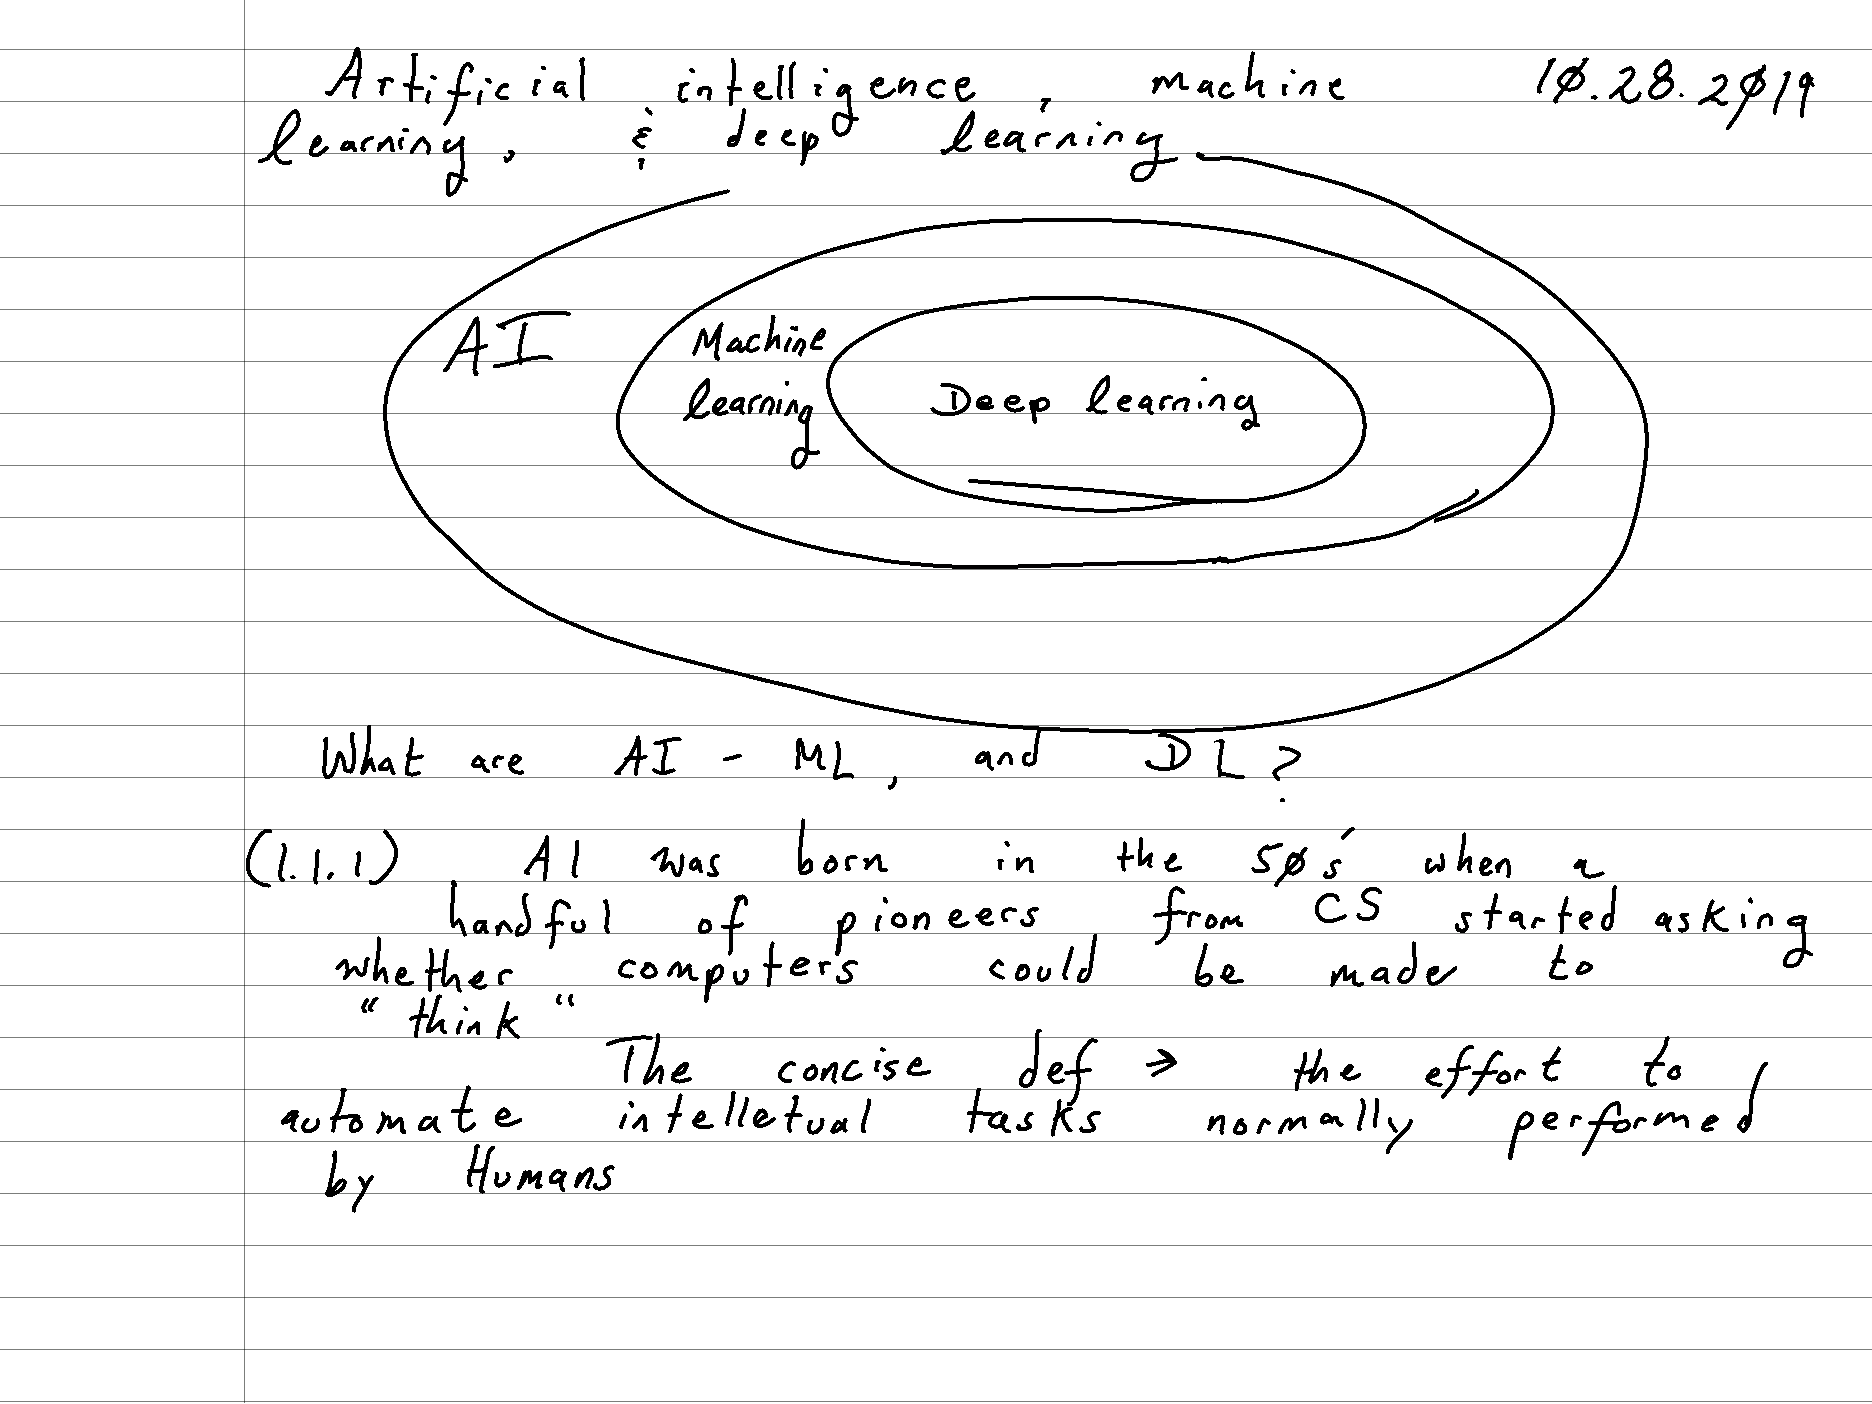 Artificial intelligence, machine 10.28.2019
learning, & deep learning
AI
Machine
learning
Deep learning
What are AI - ML, and DL?
(1.1.1) AI was born in the 50s' when a
handful of pioneers from CS started asking
whether computers could be made to
"think"
The concise def → the effort to
automate intelletual tasks normally performed
by Humans